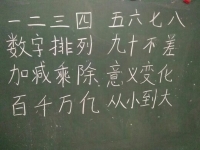 一二三四 五六七八
数字排列 九十不差
加减乘除 意义变化
百千万亿 从小到大